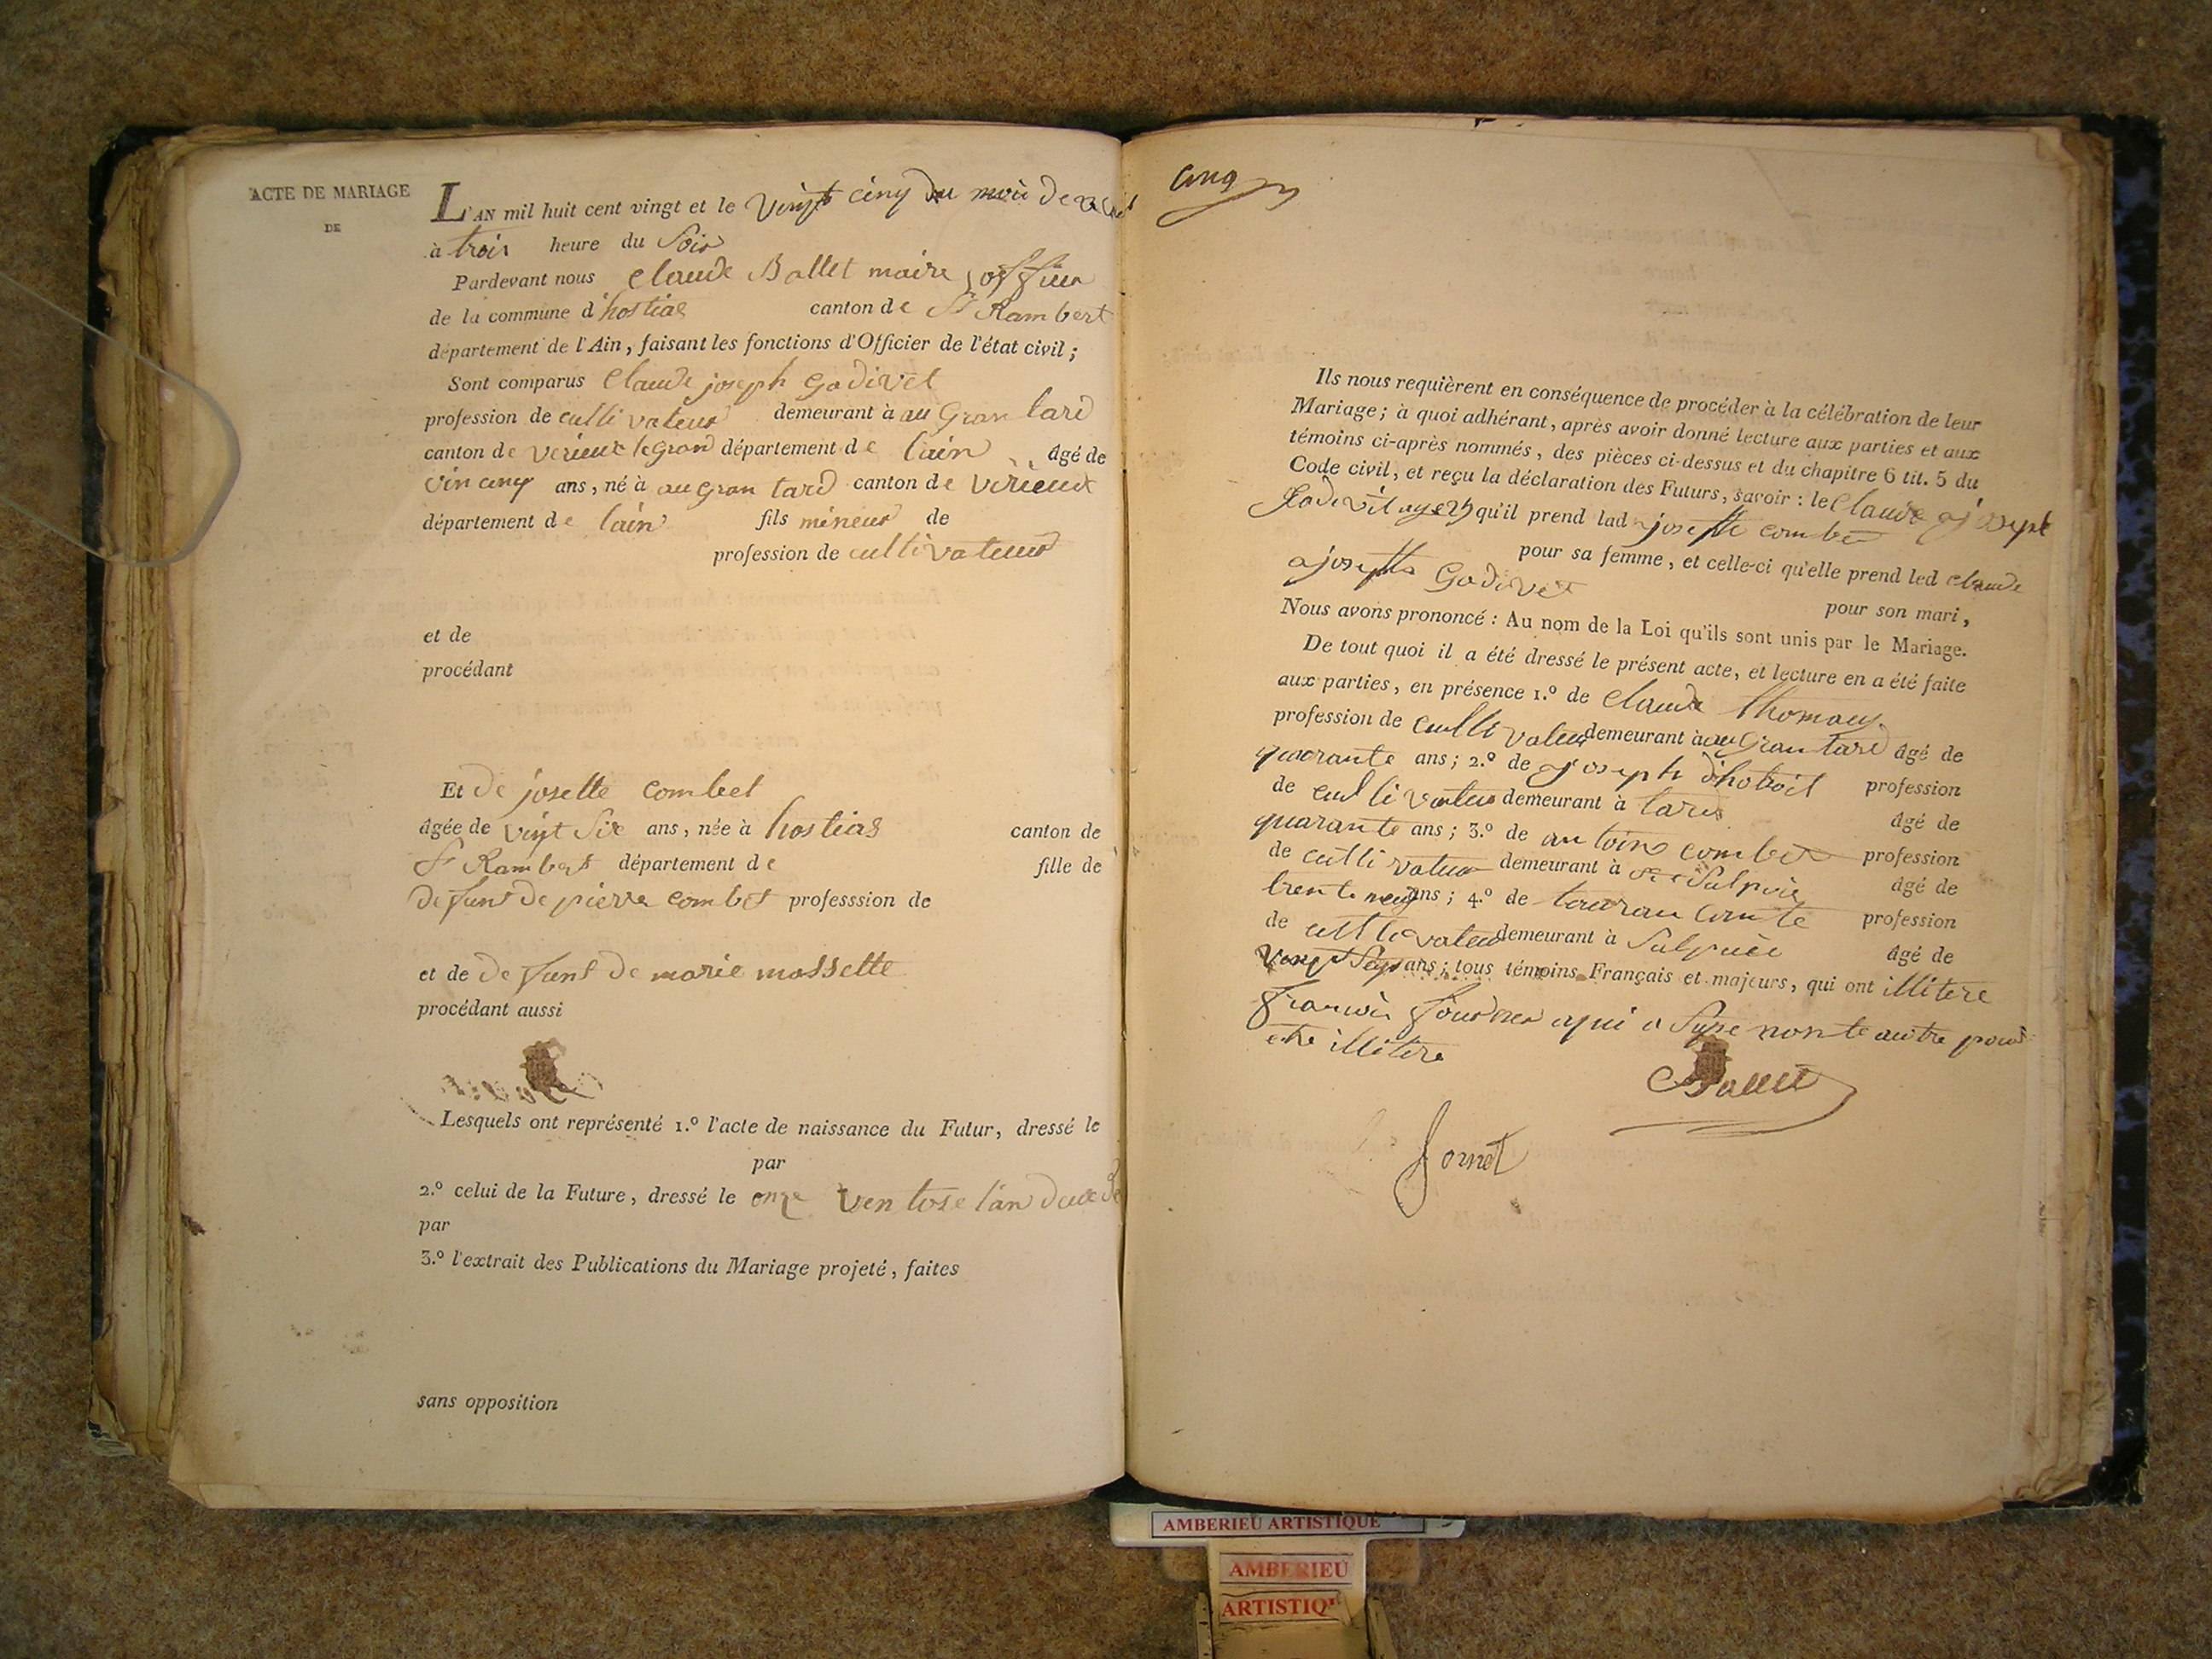 ACTE DE MARIAGE
DE
L'AN mil huit cent vingt et le vingt cinq du mois de
à trois heure du Soir
Pardevant nous Claude Ballet maire officier
de la commune d'hostias canton de St Rambert
département de l'Ain, faisant les fonctions d'Officier de l'état civil;
Sont comparus Claude joseph Godivet
profession de cultivateur demeurant à au Gran tard
canton de Verieux le grand département de lain âgé de
vin cinq ans, né à au gran tard canton de Virieux
département de lain fils mineur de
profession de cultivateur
et de
procédant
Et de josette Combet
âgée de vingt Six ans, née à hostias canton de
St Rambert département de fille de
defunt de pierre Combet professsion de
et de defunt de marie massette
procédant aussi
Lesquels ont représenté 1.º l'acte de naissance du Futur, dressé le
par
2.º celui de la Future, dressé le onze ventose l'an deux
par
3.º l'extrait des Publications du Mariage projeté, faites
sans opposition
cinq
Ils nous requièrent en conséquence de procéder à la célébration de leur
Mariage; à quoi adhérant, après avoir donné lecture aux parties et aux
témoins ci-après nommés, des pièces ci-dessus et du chapitre 6 tit. 5 du
Code civil, et reçu la déclaration des Futurs, savoir: le Claude
Godivet qu'il prend lad combet
pour sa femme, et celle-ci qu'elle prend led claude
Godivet pour son mari,
Nous avons prononcé: Au nom de la Loi qu'ils sont unis par le Mariage.
De tout quoi il a été dressé le présent acte, et lecture en a été faite
aux parties, en présence 1.º de Claude
profession de cultivateur demeurant à au Gran tard âgé de
quarante ans; 2.º de profession
de cultivateur demeurant à tard âgé de
quarante ans; 3.º de antoine combet profession
de cultivateur demeurant à âgé de
trente neuf ans; 4.º de profession
de cultivateur demeurant à Sulpice âgé de
vingt Sept ans; tous témoins Français et majeurs, qui ont illitere
qui a non
etre illitere
Ballet
AMBERIEU ARTISTIQUE
AMBERIEU
ARTISTIQ